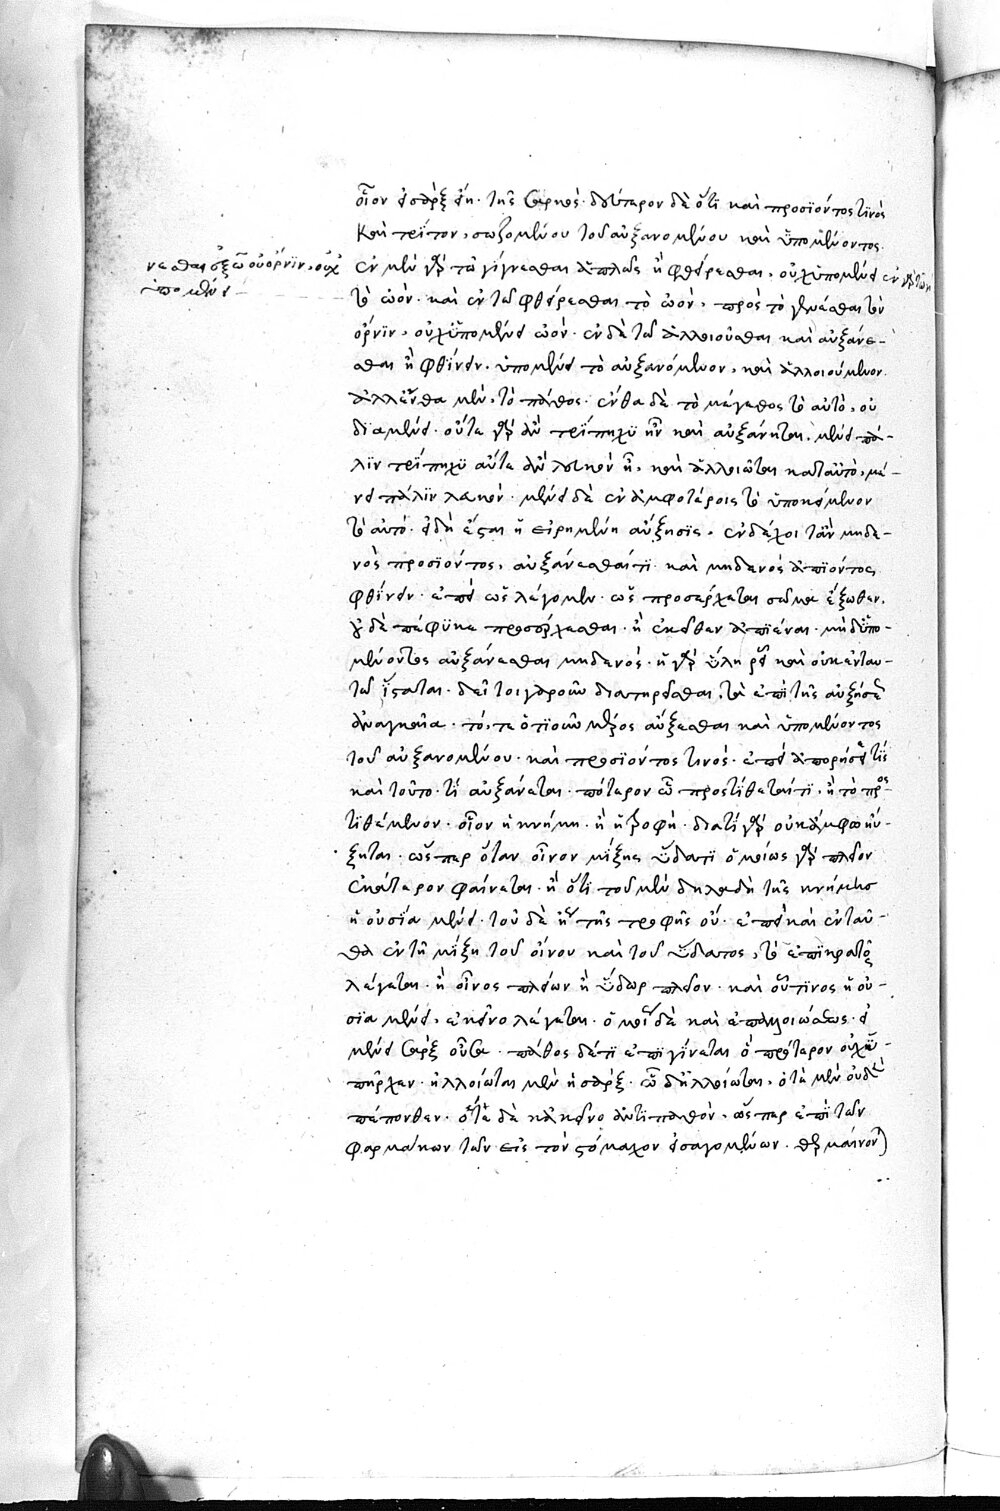 οἷον ἡ σὰρξ ἢ τῆς σαρκός. δεύτερον δὲ ὅτι καὶ προσϊόντος τϊνὸς
Καὶ τρίτον, σωζομένου τοῦ αὐξανομένου καὶ ὑπομένοντος.
ἐν μὲν γὰρ τῷ γίγνεσθαι ἁπλῶς ἢ φθείρεσθαι, οὐχ ὑπομένει ἐν γὰρ τῷ
νεσθαι ἐξ ὠοῦ ὄρνϊν, οὐχ
ὑπομένει
τὸ ὠόν. καὶ ἐν τῷ φθείρεσθαι τὸ ὠόν, πρὸς τὸ γενέσθαι τὸν
ὄρνϊν, οὐχ ὑπομένει ὠόν. ἐν δὲ τῷ ἀλλοιοῦσθαι καὶ αὐξάνε-
σθαι ἢ φθίνειν. ὑπομένει τὸ αὐξανόμενον, καὶ ἀλλοιούμενον.
ἀλλ' ἔνθα μὲν, τὸ πάθος. ἔνθα δὲ τὸ μέγεθος τὸ αὐτὸ, οὐ
διαμένει. οὔτε γὰρ ἂν τρίπηχϋ ἦν καὶ αὐξάνηται, μένει πά-
λϊν τρίπηχϋ οὔτε ἂν λευκὸν ἦ, καὶ ἀλλοιῶται κατ' αὐτὸ, μέ-
νει πάλϊν λευκόν. μένει δὲ ἐν ἀμφοτέροις τὸ ὑποκείμενον
τὸ αὐτό. εἰ δὴ ἔσται ἡ εἰρημένη αὔξησϊς, ἐνδέχοιτ' ἂν μηδε-
νὸς προσϊόντος, αὐξάνεσθαί τι καὶ μηδενὸς ἀπϊόντος
φθίνειν. ἐπεὶ ὡς λέγομεν. ὡς προσέρχεται σῶμα ἔξωθεν,
ὃ δὲ πέφϋκε προσέρχεσθαι. ἢ ἐκεῖθεν ἀπϊέναι. μηδ' ὑπο-
μένοντος αὐξάνεσθαι μηδενός. ἡ γὰρ ὕλη ῥεῖ καὶ οὐκ ἐν ταυ-
τῷ ἵσταται. δεῖ τοιγαροῦν διατηρεῖσθαι, τὰ ἐπὶ τῆς αὐξήσεως
ἀναγκαῖα. τό, τε ὁτϊοῦν μέρος αὔξεσθαι καὶ ὑπομένοντος
τοῦ αὐξανομένου. καὶ προσϊόντος τινός. ἐπεὶ ἀπορήσειέ τϊς
καὶ τοῦτο. τί αὐξάνεται. πότερον ᾧ προστίθεταί τϊ, ἢ τὸ προσ-
τϊθέμενον. οἷον ἡ κνήμη. ἢ ἡ τροφή. διατί γὰρ οὐκ ἄμφω ηὔ-
ξηται. ὥσπερ ὅταν οἶνον μίξῃς ὕδατϊ ὁμοίως γὰρ πλεῖον
ἑκάτερον φαίνεται. ἢ ὅτι τοῦ μὲν δηλαδὴ τῆς κνήμης
ἡ οὐσία μένει. τοῦ δὲ ἤτοι τῆς τροφῆς οὔ. ἐπεὶ καὶ ἐνταῦ-
θα ἐν τῇ μίξει τοῦ οἴνου καὶ τοῦ ὕδατος, τὸ ἐπϊκρατοῦν
λέγεται. ἢ οἶνος πλέων ἢ ὕδωρ πλεῖον. καὶ οὗτϊνος ἡ οὐ-
σία μένει, ἐκεῖνο λέγεται. ὁμοίως δὲ καὶ ἐπ' ἀλλοιώσεως. εἰ
μένει σὰρξ οὖσα. πάθος δέ τι ἐπϊγίνεται ὃ πρότερον οὐχ ὑ-
πῆρχεν. ἠλλοίωται μὲν ἡ σὰρξ. ᾧ δ' ἠλλοίωται, ὁτὲ μὲν οὐδὲν
πέπονθεν. ὁτὲ δὲ κἀκεῖνο ἀντιπαθὸν. ὥσπερ ἐπὶ τῶν
φαρμάκων τῶν εἰς τὸν στόμαχον εἰσαγομένων. θερμαίνον